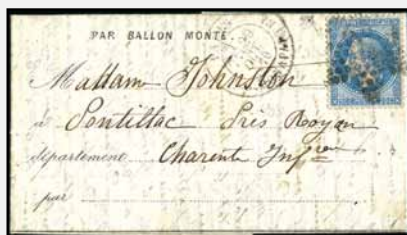 PAR BALLON MONTÉ.
Madam Johnston
à Pontillac Près Royan
département Charente Infre
par